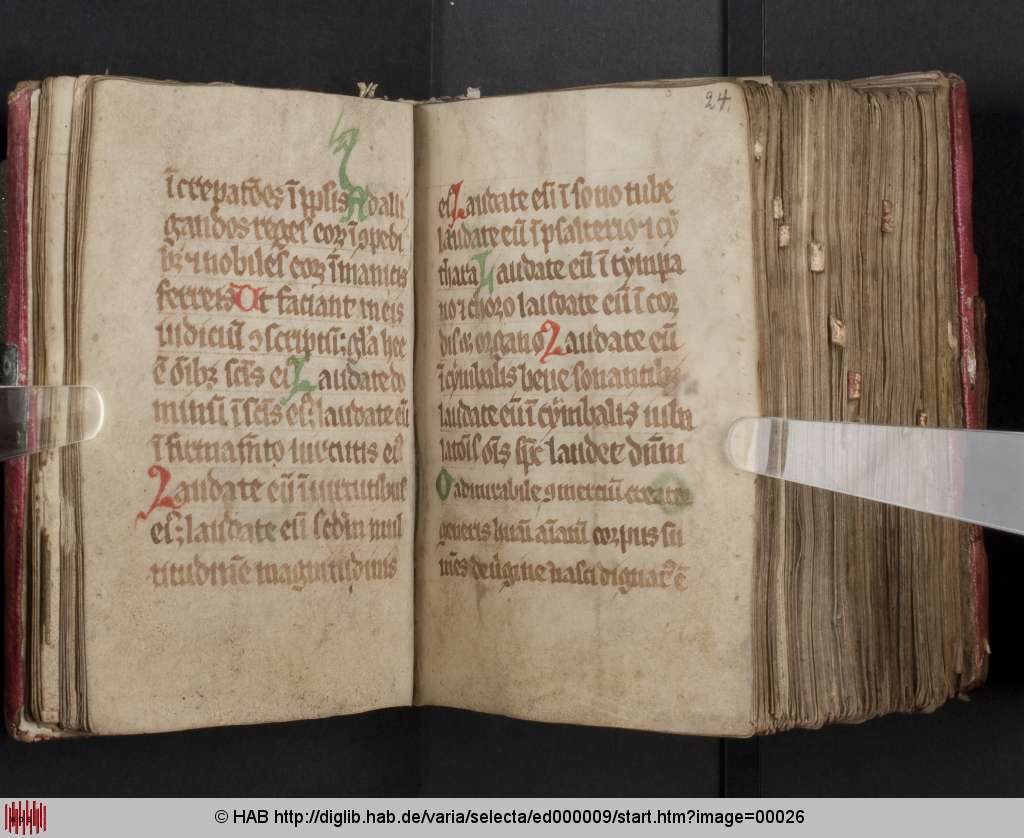 ĩcrepatiões ĩ ipsis Ad alli
gandos reges eorꝫ ĩ ꝯpedi
bꝫ ⁊ nobiles eorꝫ ĩ manicis
ferreis Vt faciant in eis
iudiciũ ꝯscriptũ; gl'a hec
ẽ oĩbꝫ sc̃is eiꝰ Laudate do
minũ ĩ sc̃is eꝰ; laudate eũ
ĩ firmam̃to uirtutis eiꝰ
Laudate eũ ĩ uirtutibus
eꝰ; laudate eũ scd'm mul
titudinẽ magnitudinis
24.
eꝰ Laudate eũ ĩ sono tube
laudate eũ ĩ psalterio ⁊ cy
thara Laudate eũ ĩ tympa
no ⁊ choro laudate eũ ĩ cor
dis ⁊ organo Laudate eũ
ĩ cymbalis bene sonantibꝫ
laudate eũ ĩ cymbalis iubi
latõis oĩs sp̃c laudet dñm
O admirabile ꝯmerciũ creator
generis hũani aĩatũ corpus su
mẽs de ũgine nasci dignatꝰ ẽ
© HAB http://diglib.hab.de/varia/selecta/ed000009/start.htm?image=00026